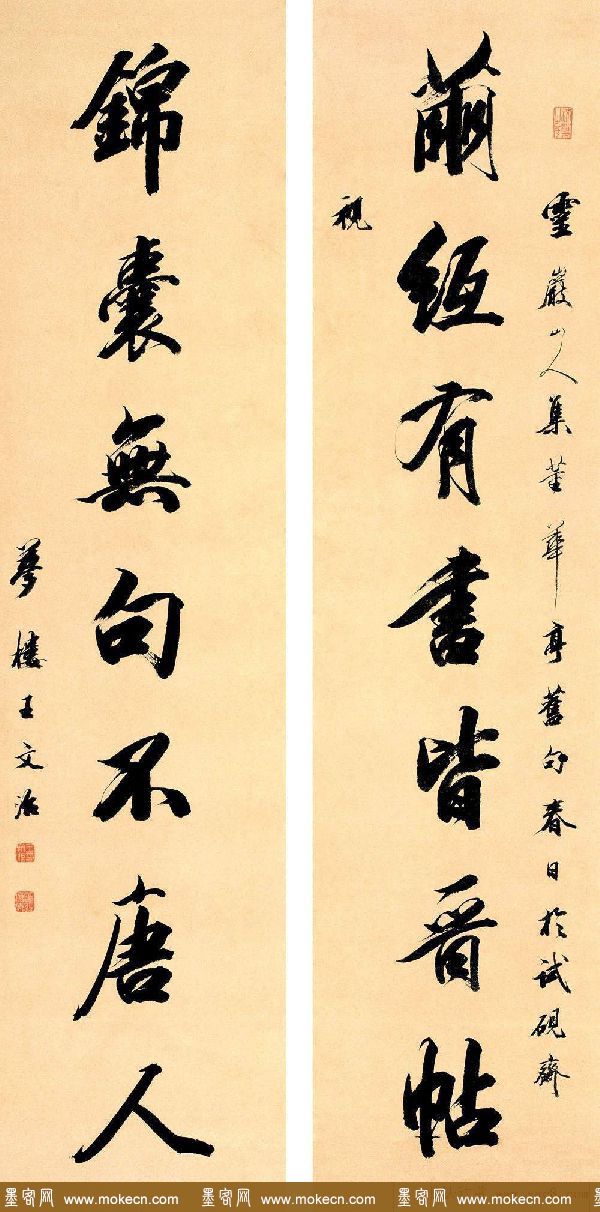 靈巖山人集董華亭舊句春日於試硯齋
繭紙有書皆晉帖
視
錦囊無句不唐人
夢樓王文治
墨客网 www.mokecn.com 墨客网 www.mokecn.com 墨客网 www.mokecn.com